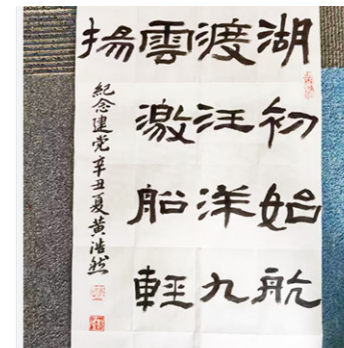 湖初始航
渡汪洋九
雲激船輕
揚
紀念建党辛丑夏黄浩然